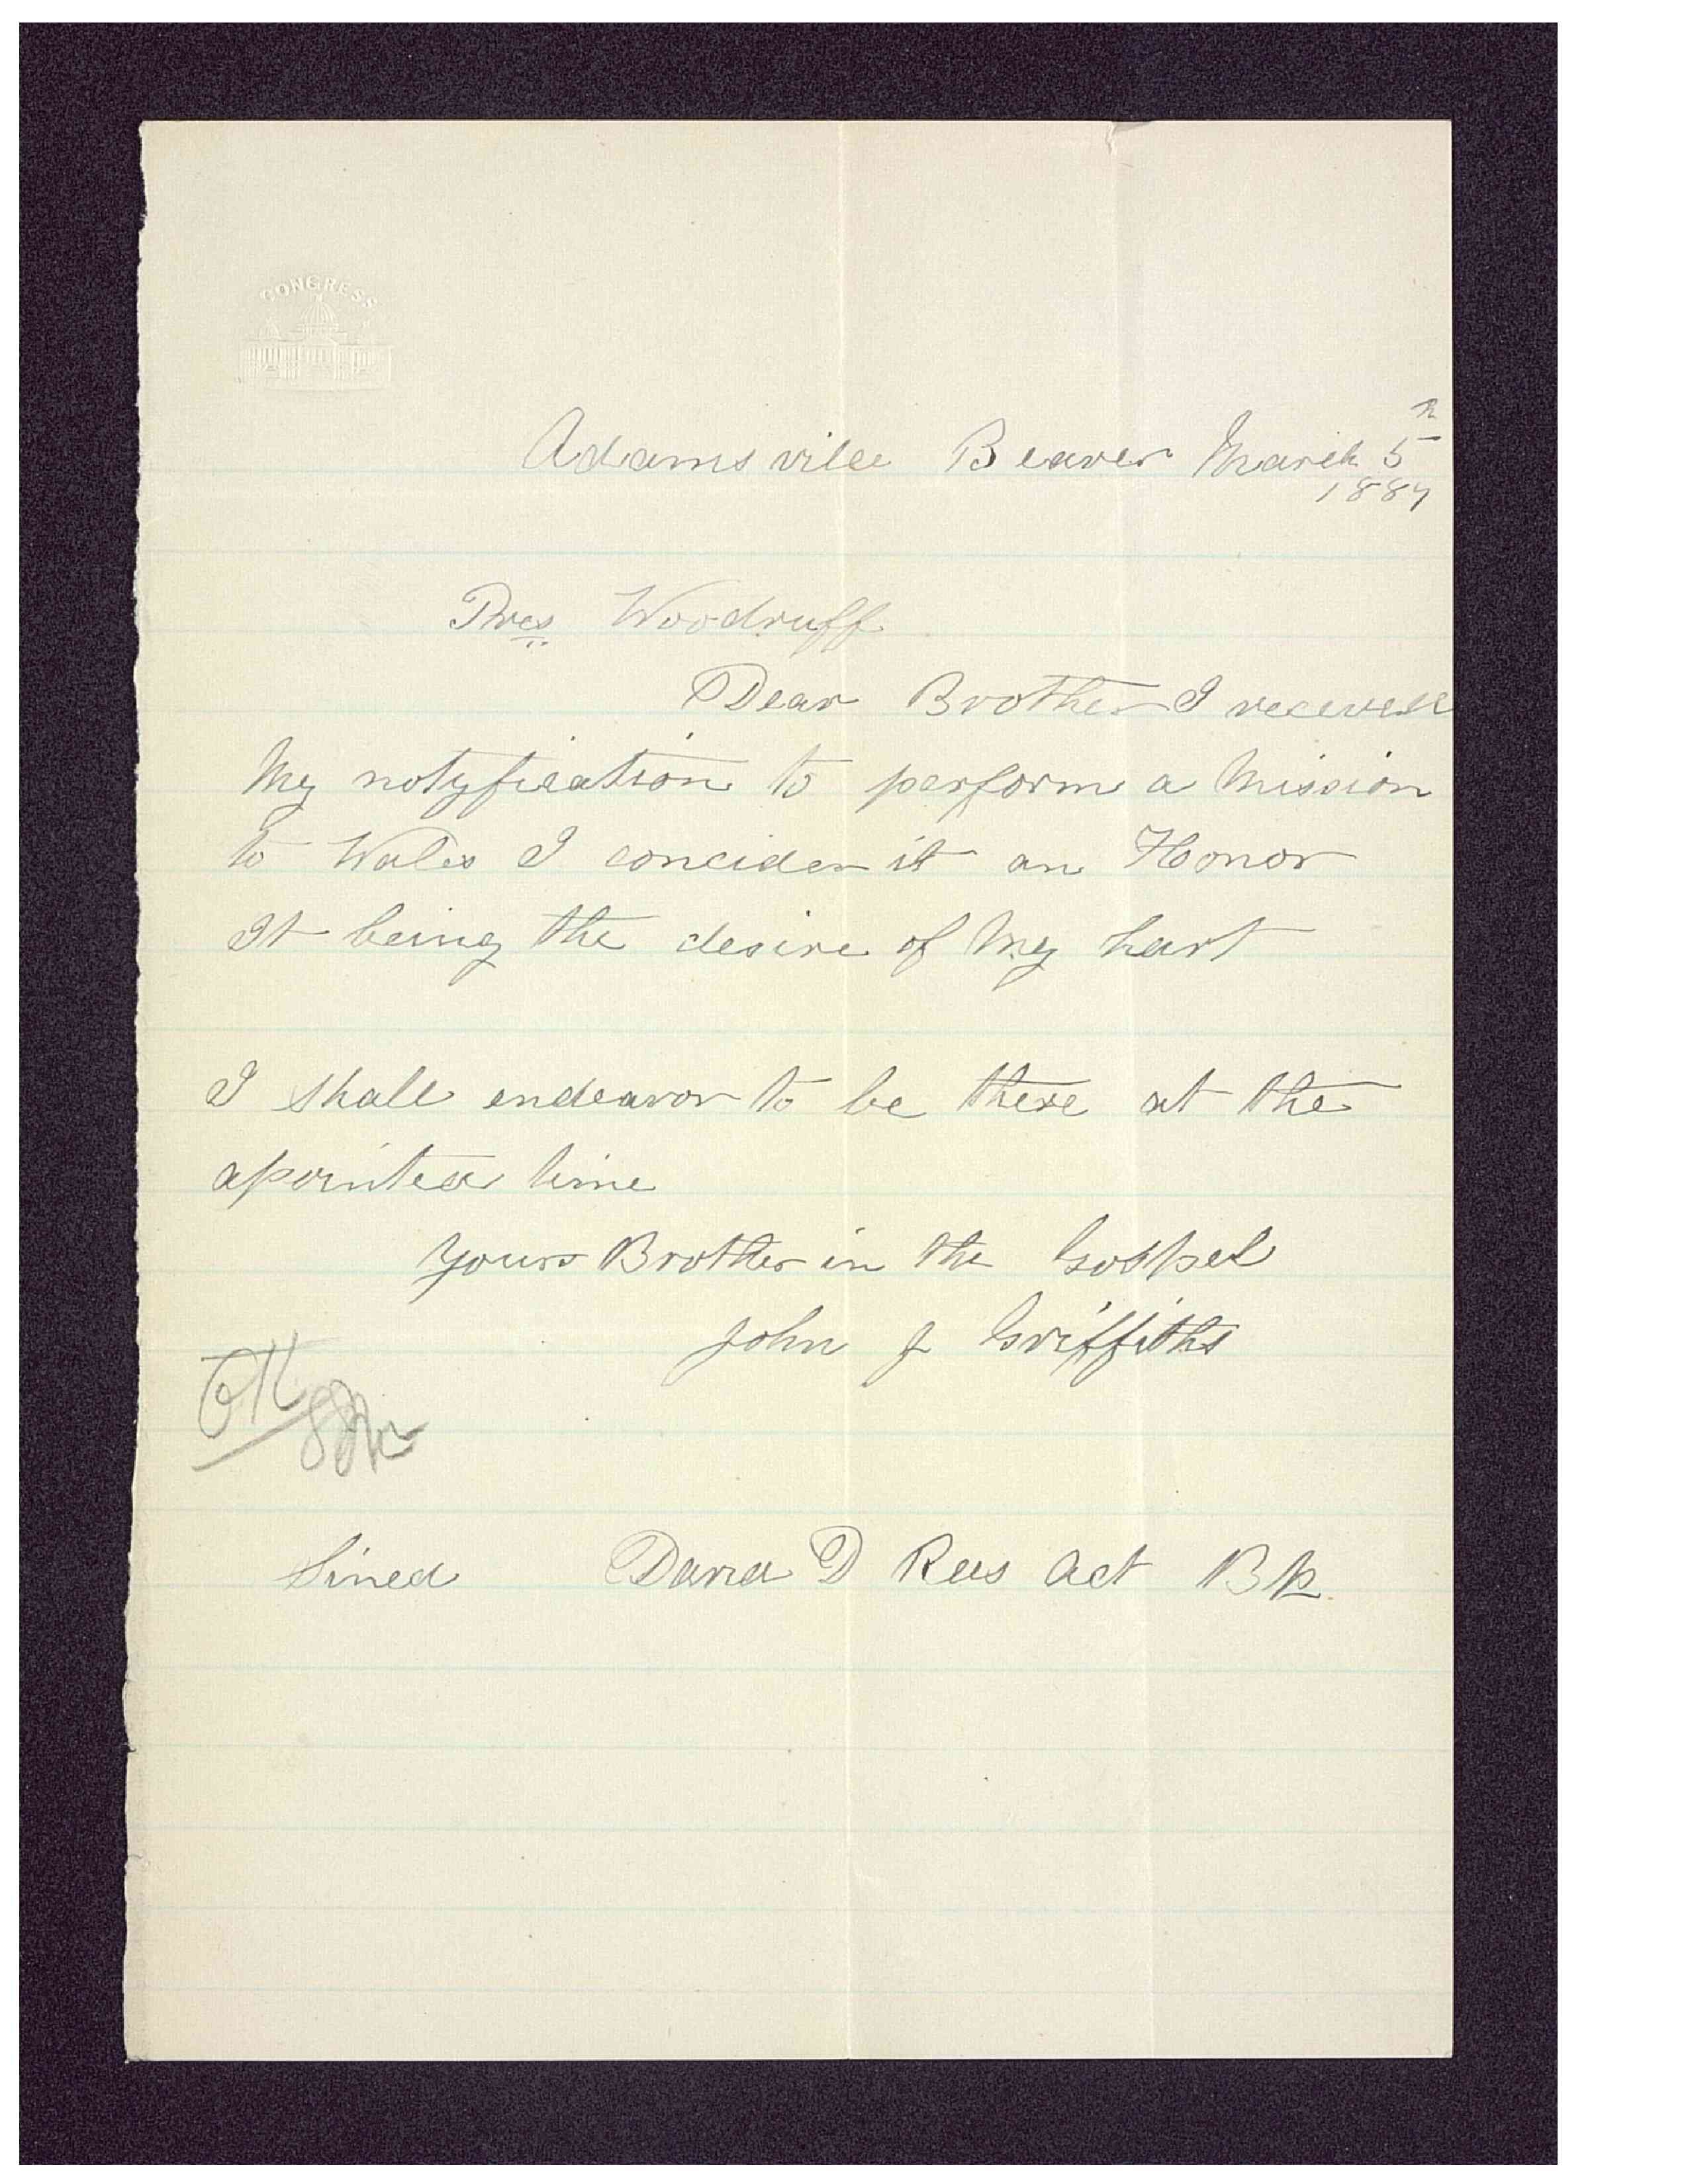 CONGRESS
Adamsville Beaver March 5th
1889
Pres Woodruff
Dear Brother I receved
My notyfication to perform a Mission
to Wales I concider it an Honor
It being the desire of My hart
I shall endeavor to be there at the
apointed time
Yours Brother in the Gospel
John J Griffiths
OK
Sined David D Rees Act Bp